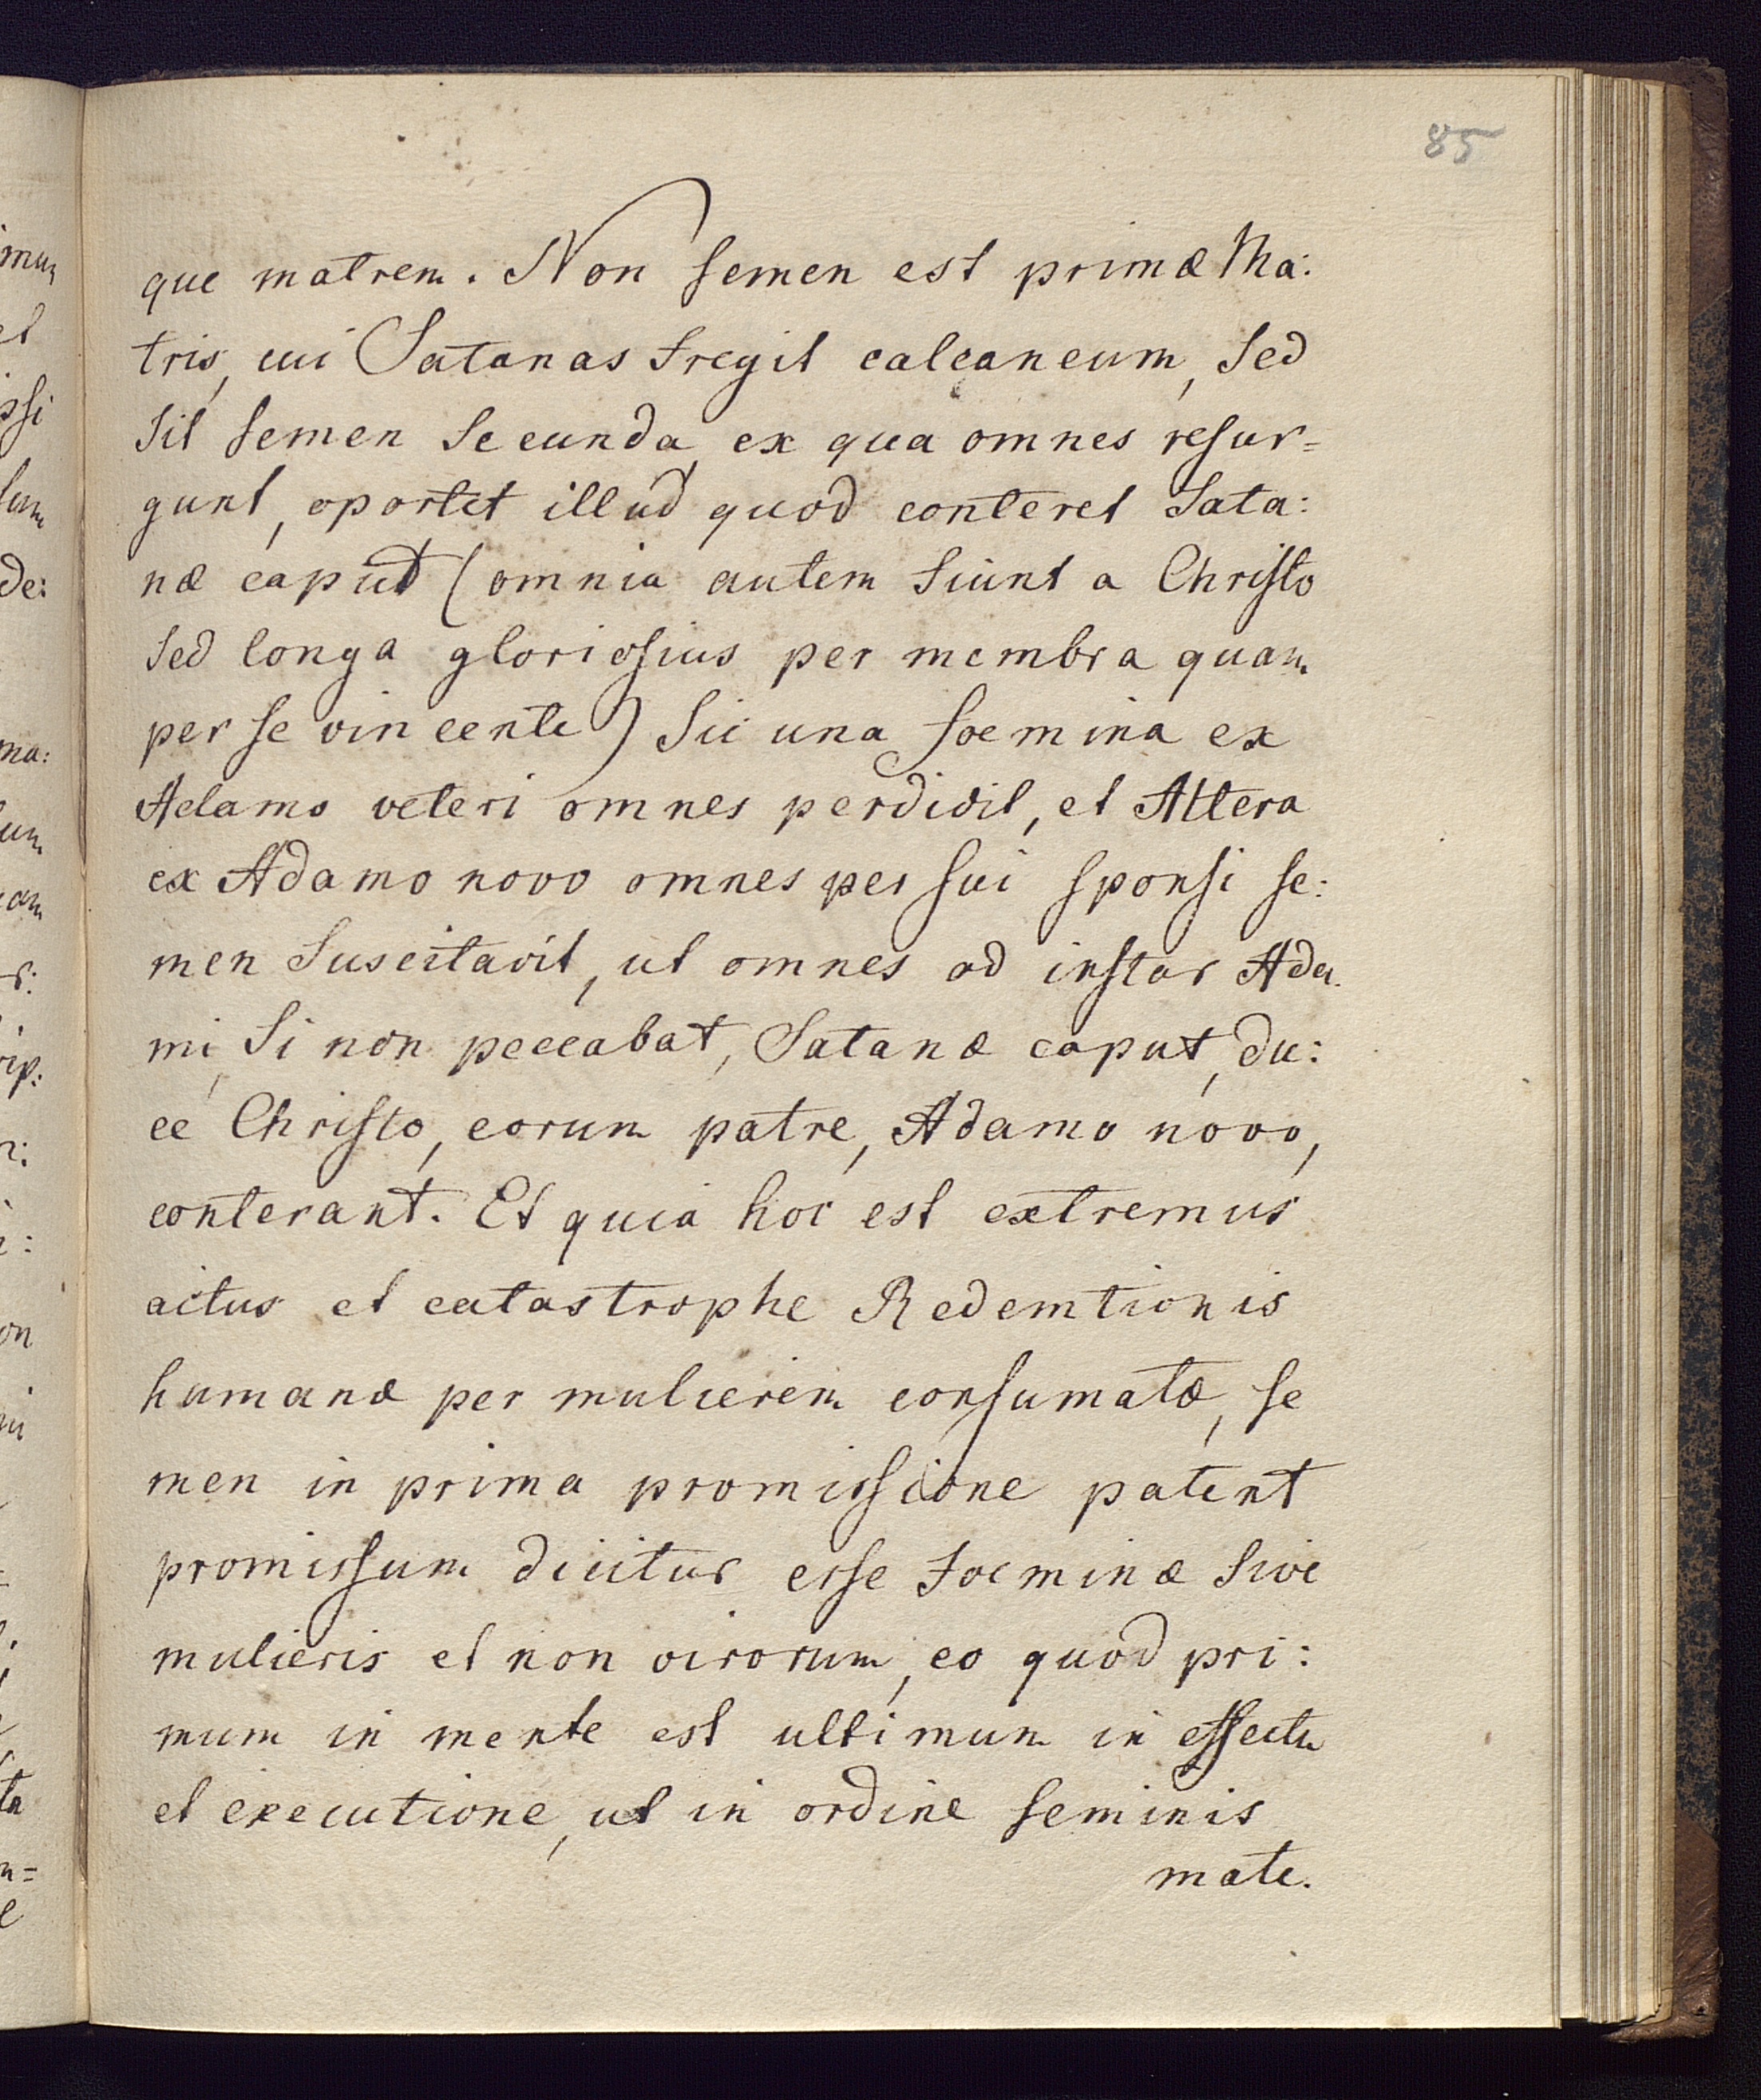 85
que matrem. Non semen est primæ Ma:
tris, cui Satanas fregit calcaneum, sed
sit semen secunda, ex qua omnes resur=
gunt, oportet illud quod conteret Sata:
næ caput (omnia autem fiunt a Christo
sed longa gloriosius per membra quam
per se vincente) sic una foemina ex
Adamo veteri omnes perdidit, et Altera
ex Adamo novo omnes per sui sponsi se:
men suscitavit, ut omnes ad instar Ada.
mi, si non peccabat, Satanæ caput, du:
ce Christo, eorum patre, Adamo novo,
conterant. Et quia hoc est extremus
actus et catastrophe Redemtionis
humanæ per mulierem consumatæ, se
men in prima promissione patent
promissum dicitur esse foeminæ sive
mulieris et non virorum, eo quod pri:
mum in mente est ultimum in effectu
et executione, ut in ordine seminis
mate.